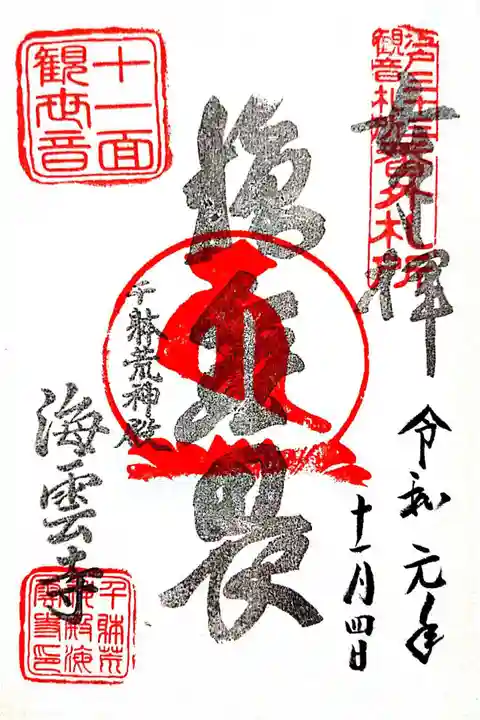 江戸三十三
観音札所
番外札所
奉拝
令和元年
十一月四日
施無畏
千躰荒神殿
海雲寺
十一面
観世音
千躰荒
神殿海
雲寺印